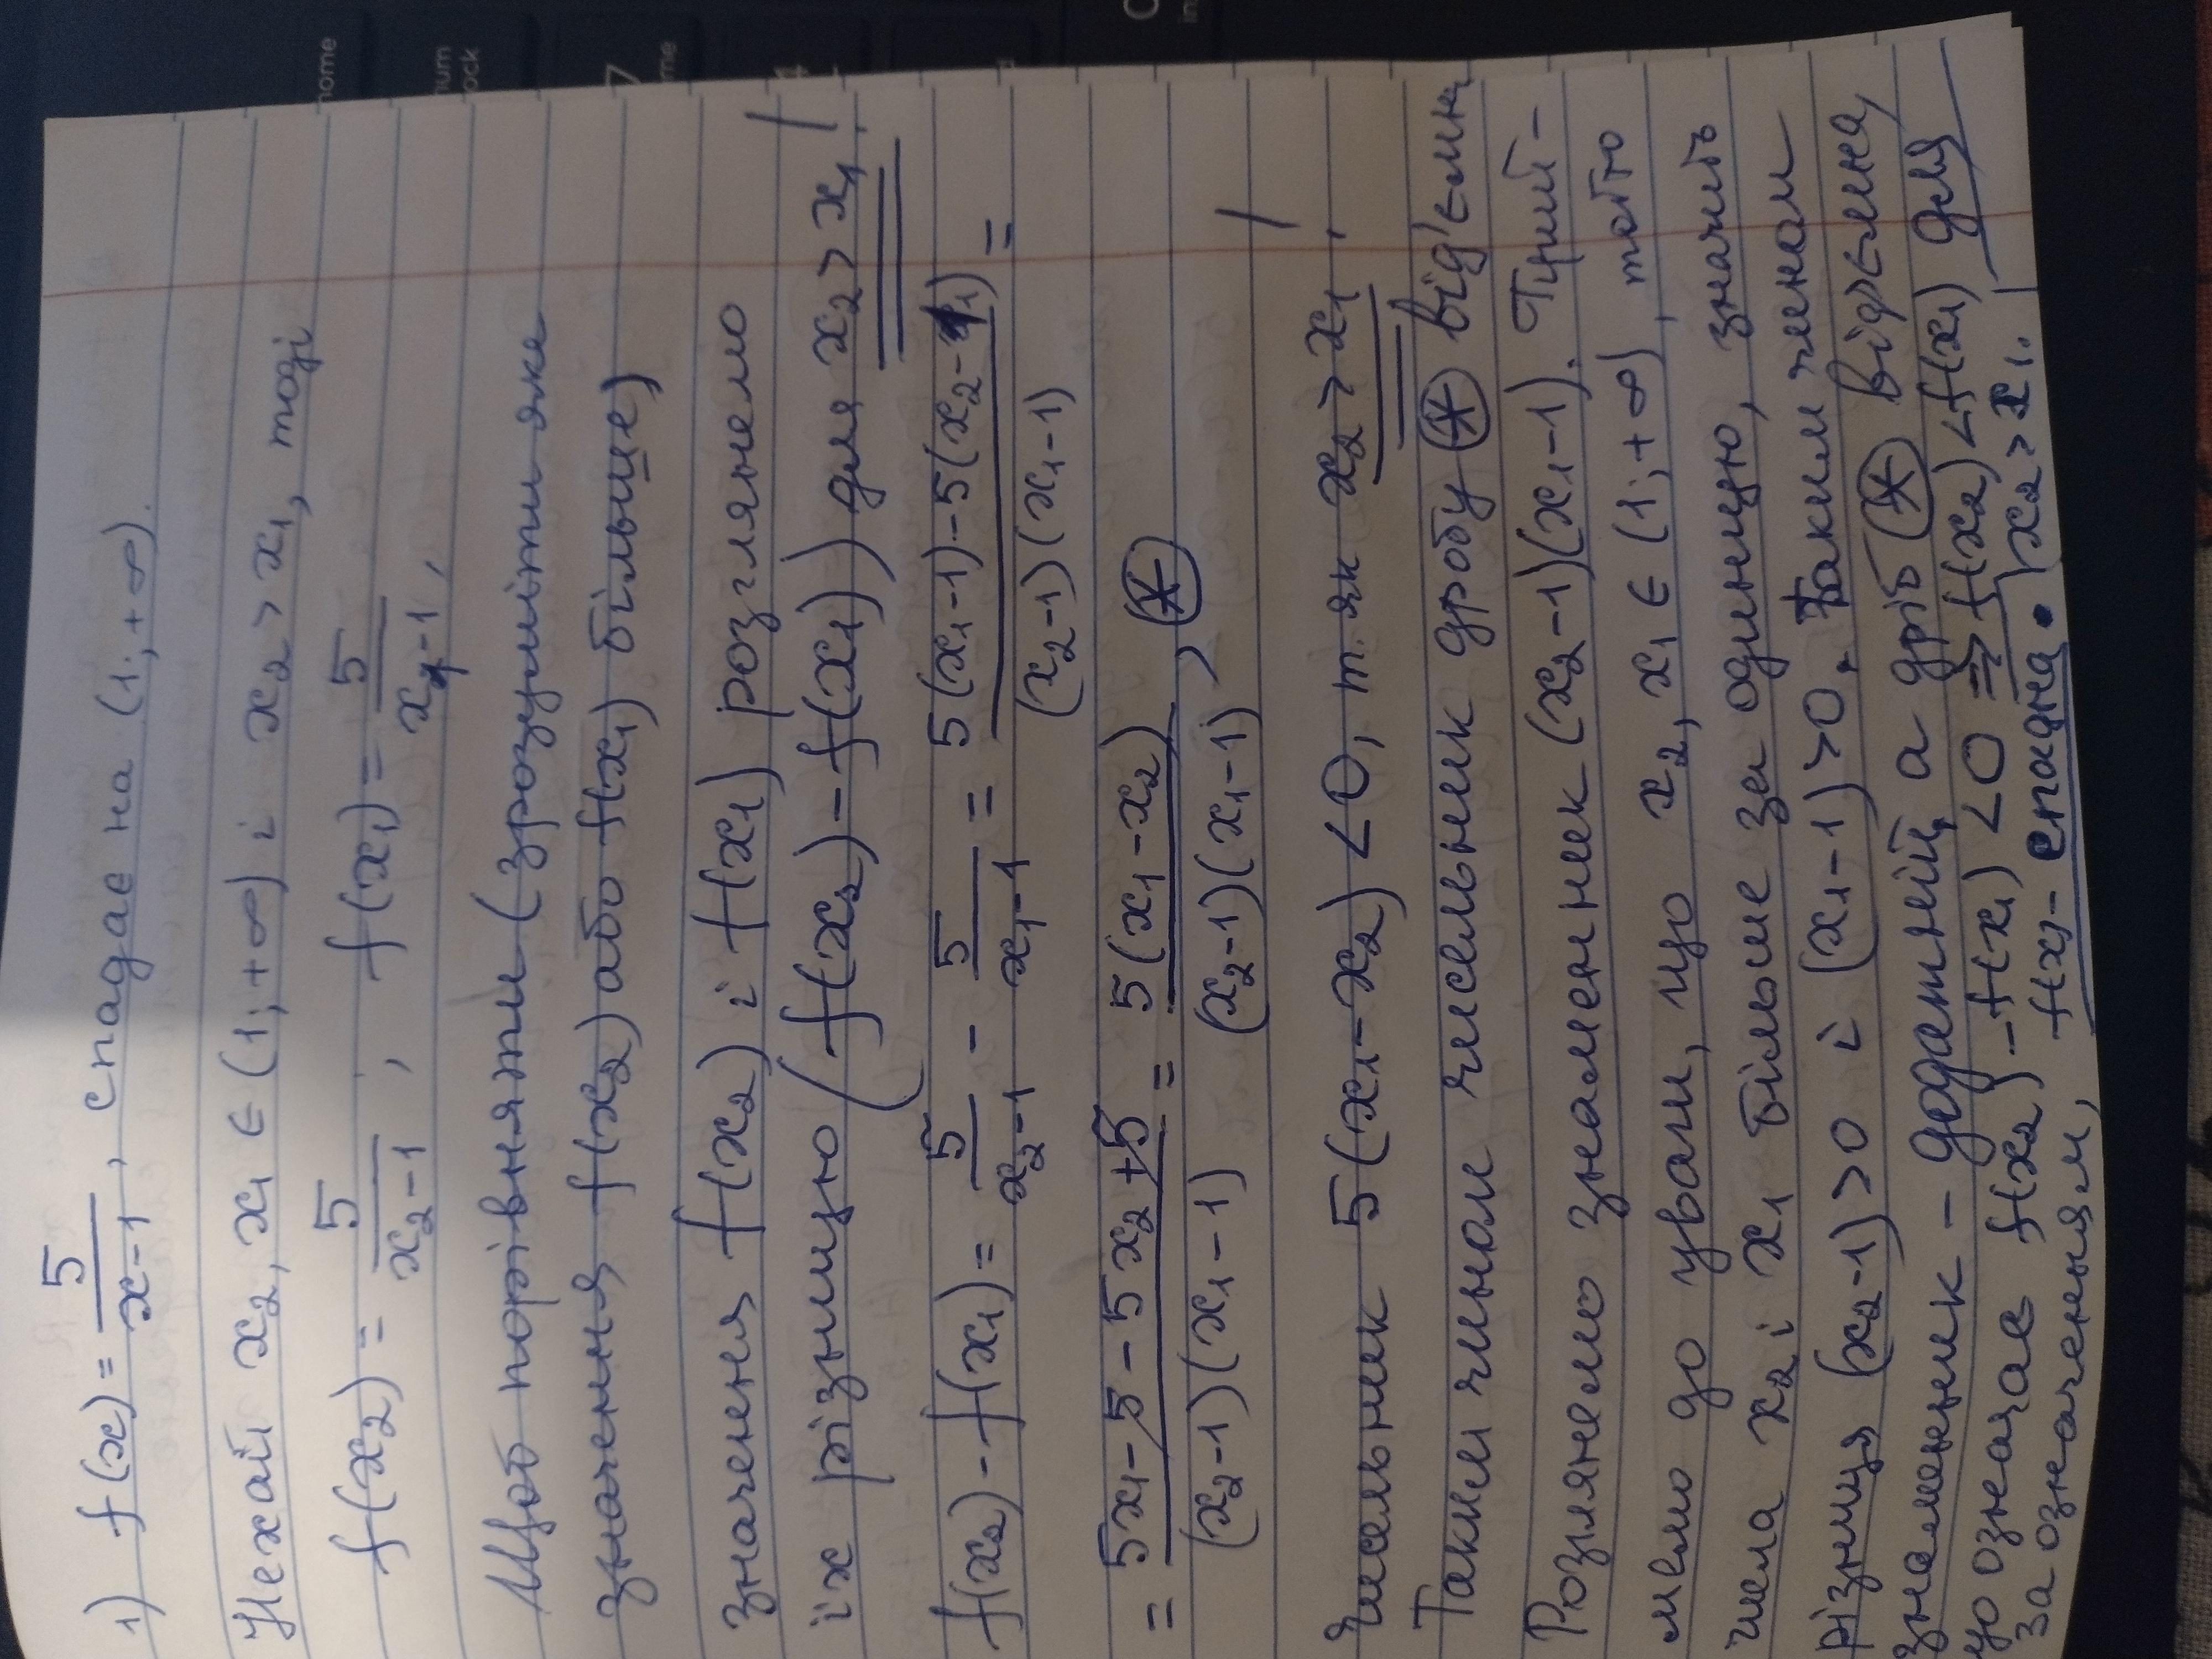 1) f(x) = 5/(x-1), спадає на (1; +∞).
Нехай x₂, x₁ ∈ (1; +∞) і x₂ > x₁, тоді
f(x₂) = 5/(x₂-1); f(x₁) = 5/(x₁-1),
Щоб порівняти (зрозуміти яке
значення f(x₂) або f(x₁) більше)
значення f(x₂) і f(x₁) розглянемо
їх різницю (f(x₂) - f(x₁)) для x₂ > x₁!
f(x₂) - f(x₁) = 5/(x₂-1) - 5/(x₁-1) = (5(x₁-1) - 5(x₂-1))/((x₂-1)(x₁-1)) =
= (5x₁ - 5 - 5x₂ + 5)/((x₂-1)(x₁-1)) = 5(x₁-x₂)/((x₂-1)(x₁-1)), (*)
Чисельник 5(x₁-x₂) < 0, т. як x₂ > x₁!
Таким чином чисельник дробу (*) від'ємний
Розглянемо знаменник (x₂-1)(x₁-1). Прий-
мемо до уваги, що x₂, x₁ ∈ (1; +∞), тобто
числа x₂ і x₁ більше за одиницю, значить
різниця (x₂-1) > 0 і (x₁-1) > 0. Таким чином
знаменник - додатний, а дріб (*) від'ємна,
що означає f(x₂) - f(x₁) < 0 ⇒ f(x₂) < f(x₁) для
За означенням, f(x) - спадна. x₂ > x₁.